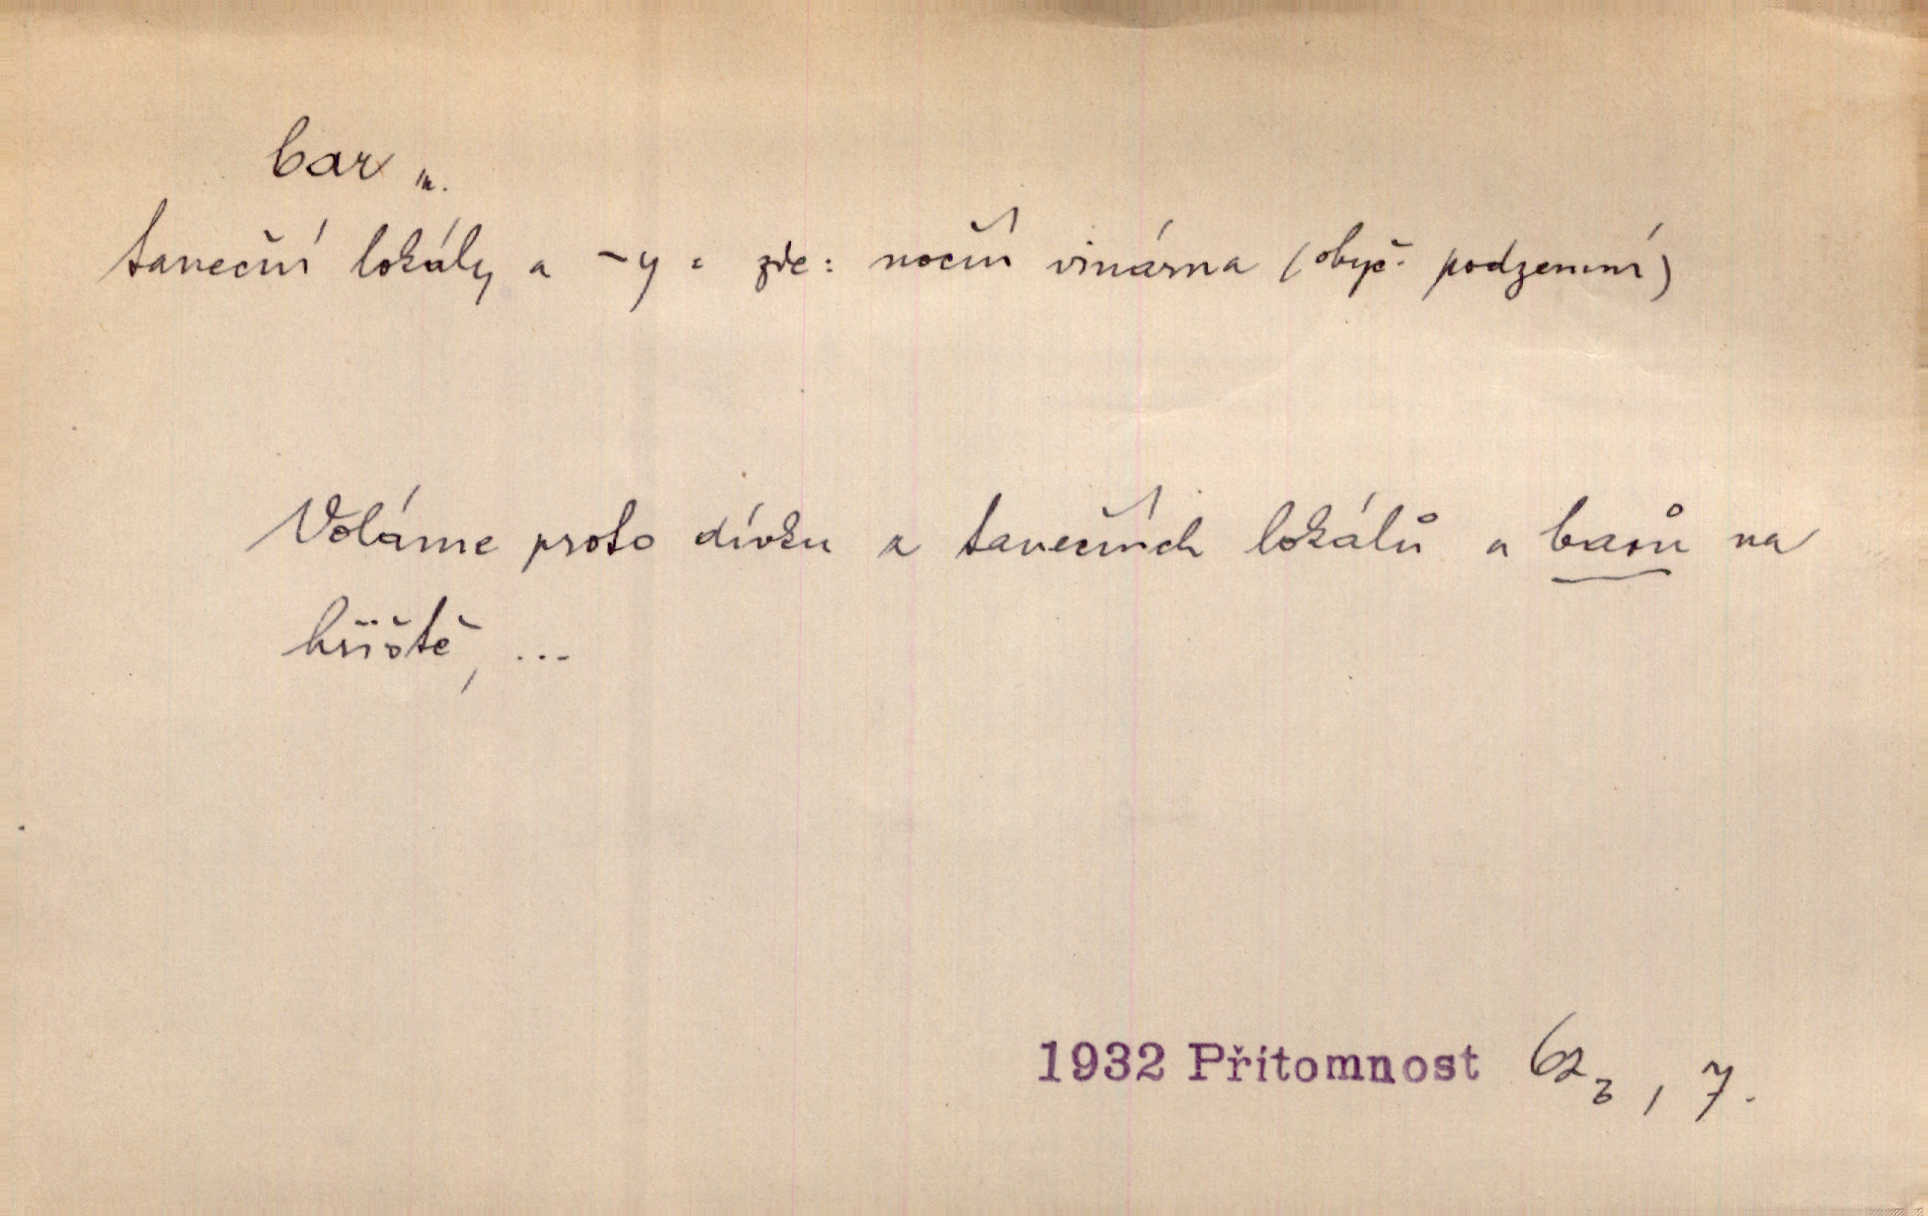 bar m.
taneční lokály a -y = zde: noční vinárna (obyč. podzemní)
Voláme proto dívku z tanečních lokálů a barů na
hřiště, ...
1932 Přítomnost 62₃, 7.